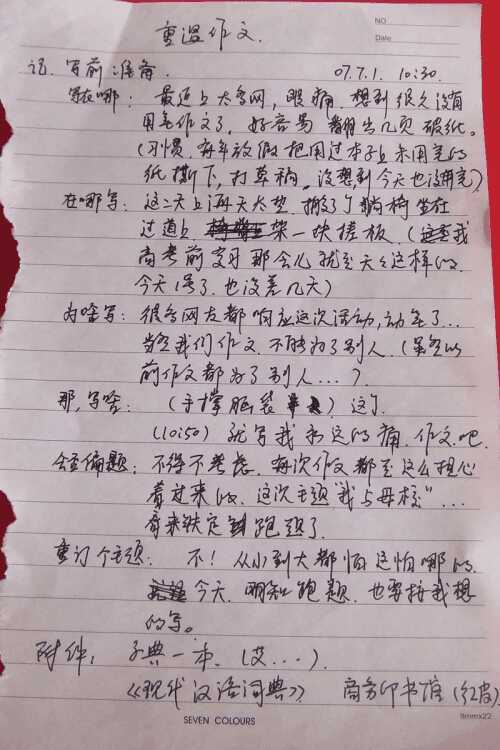 NO
Date
重温作文.
记. 写前准备. 07.7.1. 10:30.
写在哪: 最近上太多网, 眼痛. 想到很久没有
用笔作文了, 好容易翻出几页破纸。
(习惯. 每年放假把用过本子上未用完的
纸撕下, 打草稿. 没想到今天也没用完)
在哪写: 这二天上海天太热. 搬了个躺椅坐在
过道上 架一块搓板. (我
高考前复习那会儿就是天天这样的.
今天1号了. 也没差几天)
为啥写: 很多网友都响应这次活动, 动笔了...
当然我们作文. 不能为了别人 (虽然以
前作文都为了别人...).
那, 写啥: (手撑脑袋) 这个
(10:50) 就写我永远的痛. 作文吧.
会偏题: 不得不考虑. 每次作文都是这么担心
着过来的. 这次主题“我与母校”...
看来铁定跑题了.
重订个主题: 不! 从小到大都怕这怕那的.
今天. 明知跑题. 也要按我想
的写。
附件: 字典一本. (艾...).
《现代汉语词典》 商务印书馆 (红皮)
SEVEN COLOURS